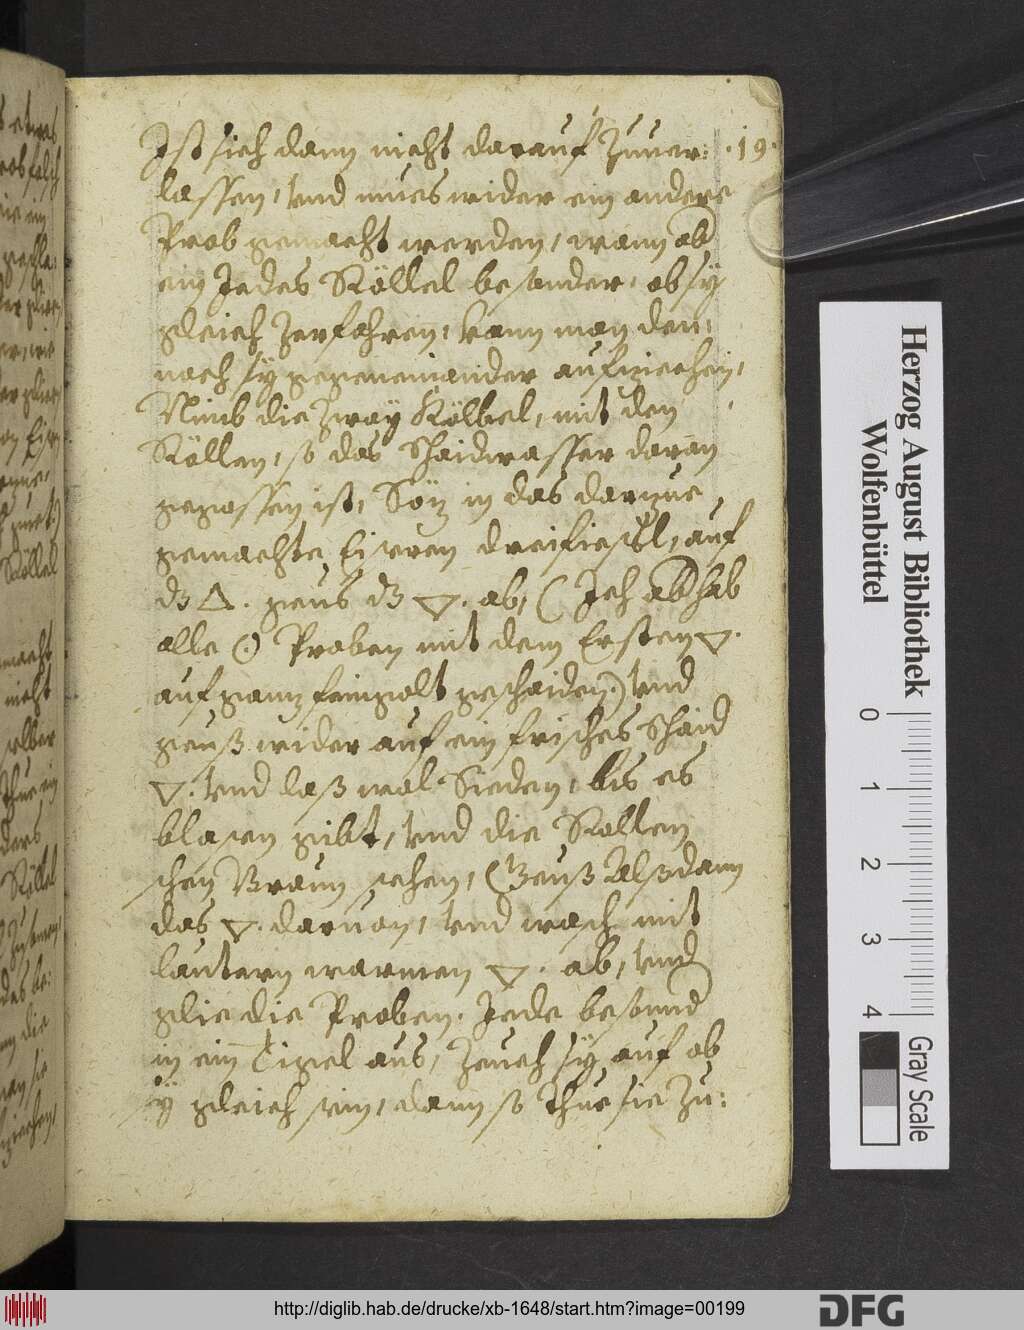 Ist sich dann nicht darauf Zuuer: ·19·
lassen, vnd mues wider ein andere
Prob gemacht werden, wann ab
ein Jedes Köllel besonder, ob sÿ
gleich Zerfahren, kann man den,
nach sÿ gegeneinander aufziechen,
Nimb die Zwaÿ Kölbel, mit den
Röllen, so das Schaidwasser daran
gegossen ist, Söz in das darzue
gemachte Eisren dreifiessl, auf
dz △. geus dz ▽. ab, (Ich hab
alle ☉ Proben mit dem Ersten ▽.
auf ganz feingolt geschaiden.) vnd
geuß wider auf ein frisches Schaid
▽. vnd laß wol Sieden, bis es
blasen gibt, vnd die Rollen
schen Braun sehen, Geuß Alßdann
das ▽. daruon, vnd wasch mit
lautern warmen ▽. ab, vnd
glie die Proben. Jede besond
in ein Tigel aus, Zeuch sÿ auf ob
sÿ gleich sein, dann so thue sie Zu:
Herzog August Bibliothek
Wolfenbüttel
0 1 2 3 4
Gray Scale
http://diglib.hab.de/drucke/xb-1648/start.htm?image=00199
DFG